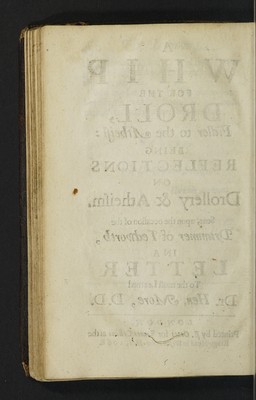 A
WHIP
FOR THE
DROLL,
Fidler to the Atheist:
BEING
REFLECTIONS
ON
Drollery & Atheism.
Sent, upon the occasion of the
Drummer of Tedworth,
IN A
LETTER
To the most Learned
Dr. Hen. More, D.D.
LONDON
Printed by